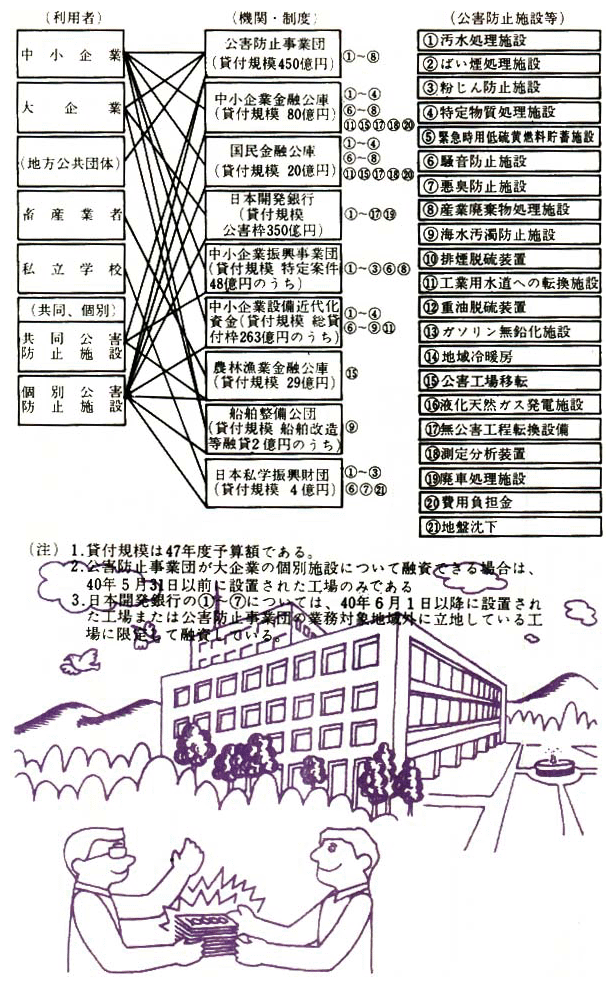 (利用者)
中小企業
大企業
(地方公共団体)
畜産業者
私立学校
(共同、個別)
共同公害
防止施設
個別公害
防止施設
(機関・制度)
公害防止事業団
(貸付規模450億円)
①~⑧
中小企業金融公庫
(貸付規模 80億円)
①~④
⑥~⑧
⑪⑮⑰⑱⑳
国民金融公庫
(貸付規模 20億円)
①~④
⑥~⑧
⑪⑮⑰⑱⑳
日本開発銀行
(貸付規模
公害枠350億円)
①~⑰⑲
中小企業振興事業団
(貸付規模 特定案件
48億円のうち)
①~③⑥⑧
中小企業設備近代化
資金(貸付規模 総貸
付枠263億円のうち)
①~④
⑥~⑨⑪
農林漁業金融公庫
(貸付規模 29億円)
⑮
船舶整備公団
(貸付規模 船舶改造
等融貸2億円のうち)
⑨
日本私学振興財団
(貸付規模 4億円)
①~③
⑥⑦㉑
(公害防止施設等)
①汚水処理施設
②ばい煙処理施設
③粉じん防止施設
④特定物質処理施設
⑤緊急時用低硫黄燃料貯蓄施設
⑥騒音防止施設
⑦悪臭防止施設
⑧産業廃棄物処理施設
⑨海水汚濁防止施設
⑩排煙脱硫装置
⑪工業用水道への転換施設
⑫重油脱硫装置
⑬ガソリン無鉛化施設
⑭地域冷暖房
⑮公害工場移転
⑯液化天然ガス発電施設
⑰無公害工程転換設備
⑱測定分析装置
⑲廃車処理施設
⑳費用負担金
㉑地盤沈下
(注) 1.貸付規模は47年度予算額である。
2.公害防止事業団が大企業の個別施設について融資できる場合は、
40年5月31日以前に設置された工場のみである
3.日本開発銀行の①~⑦については、40年6月1日以降に設置され
た工場または公害防止事業団の業務対象地域外に立地している工
場に限定して融資している。